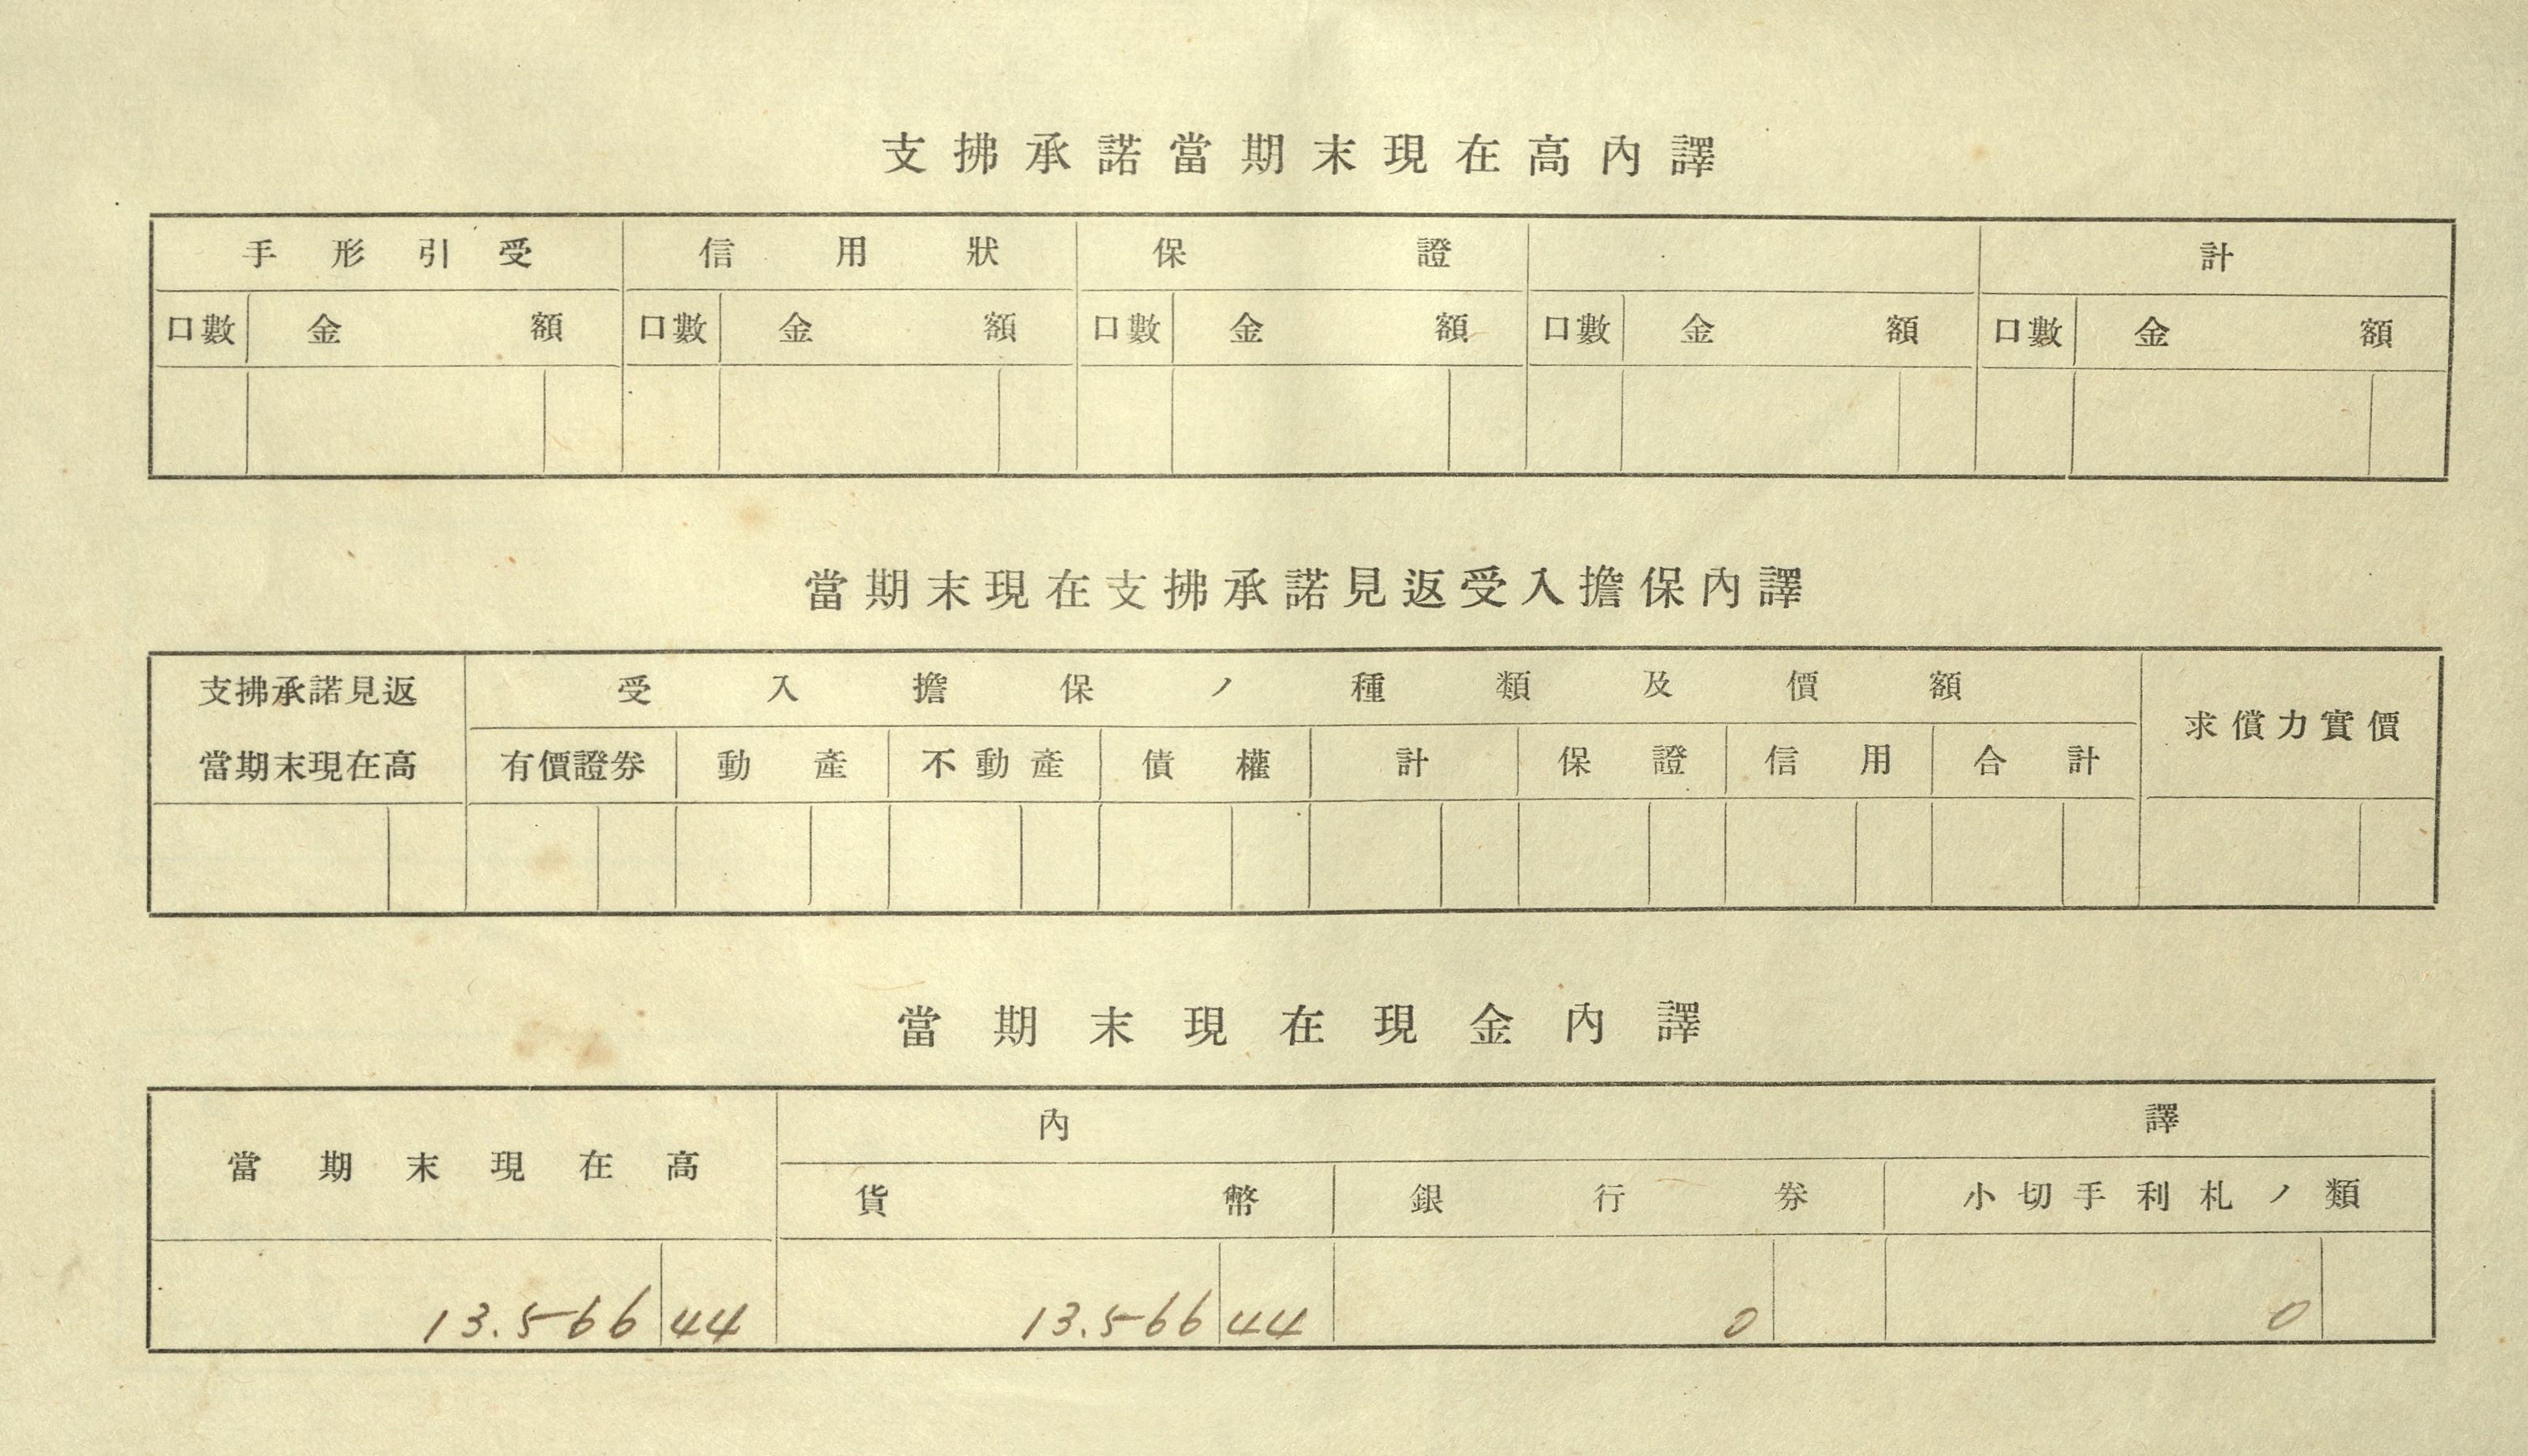 支拂承諾當期末現在高內譯
手形引受 信用狀 保證 計
口數 金額 口數 金額 口數 金額 口數 金額 口數 金額
當期末現在支拂承諾見返受入擔保內譯
支拂承諾見返 受入擔保ノ種類及價額 求償力實價
當期末現在高 有價證券 動產 不動產 債權 計 保證 信用 合計
當期末現在現金內譯
當期末現在高 內譯
貨幣 銀行券 小切手利札ノ類
13.566 44 13.566 44 0 0